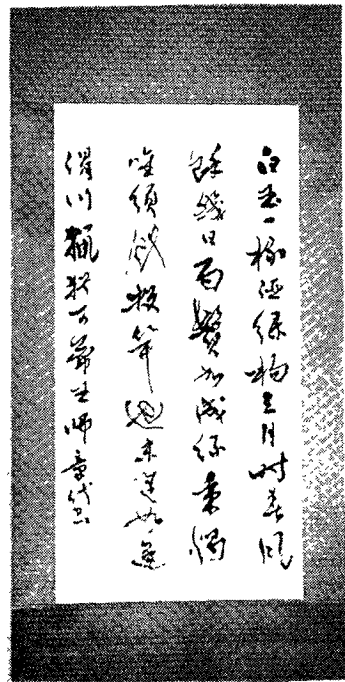 白玉一杯酒綠楊三月時春風
餘幾日兩鬢各成絲秉燭
唯須飲投竿也未遲如逢
渭川獵猶可帝王師